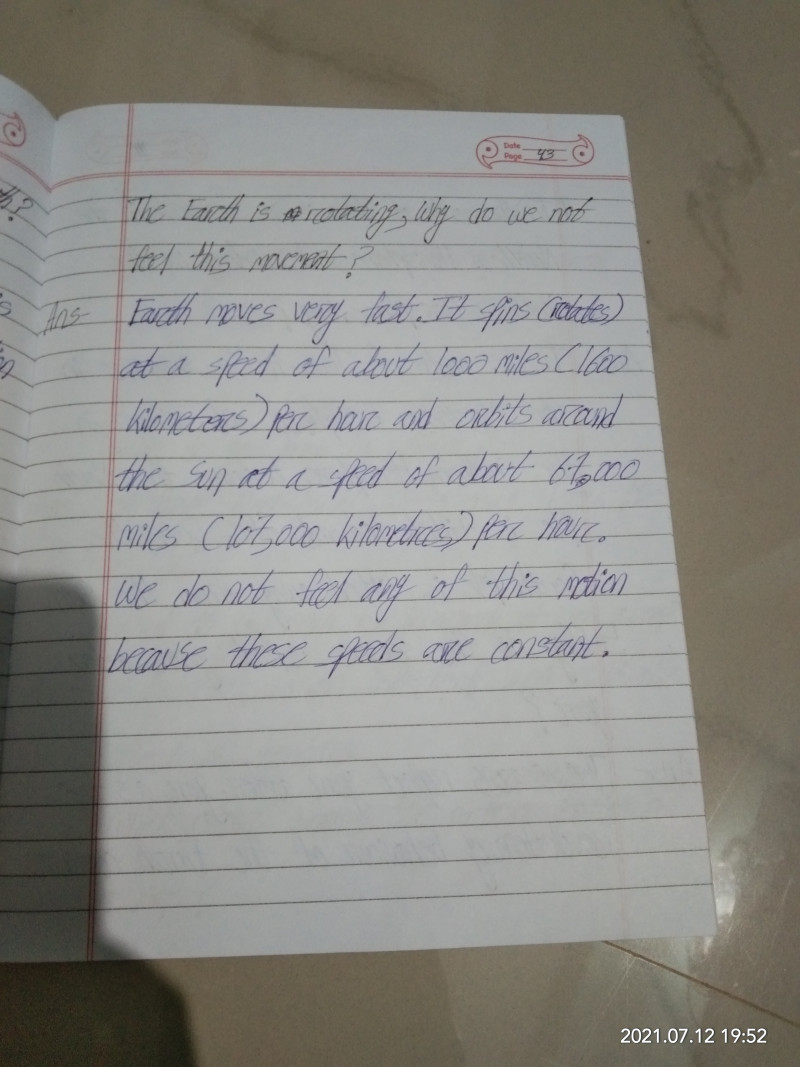 Date
Page 43
th?
The Earth is rotating, Why do we not
feel this movement?
Ans- Earth moves very fast. It spins (rotates)
at a speed of about 1000 miles (1600
kilometers) per hour and orbits around
the Sun at a speed of about 67,000
miles (107,000 kilometres) per hour.
We do not feel any of this motion
because these speeds are constant.
2021.07.12 19:52